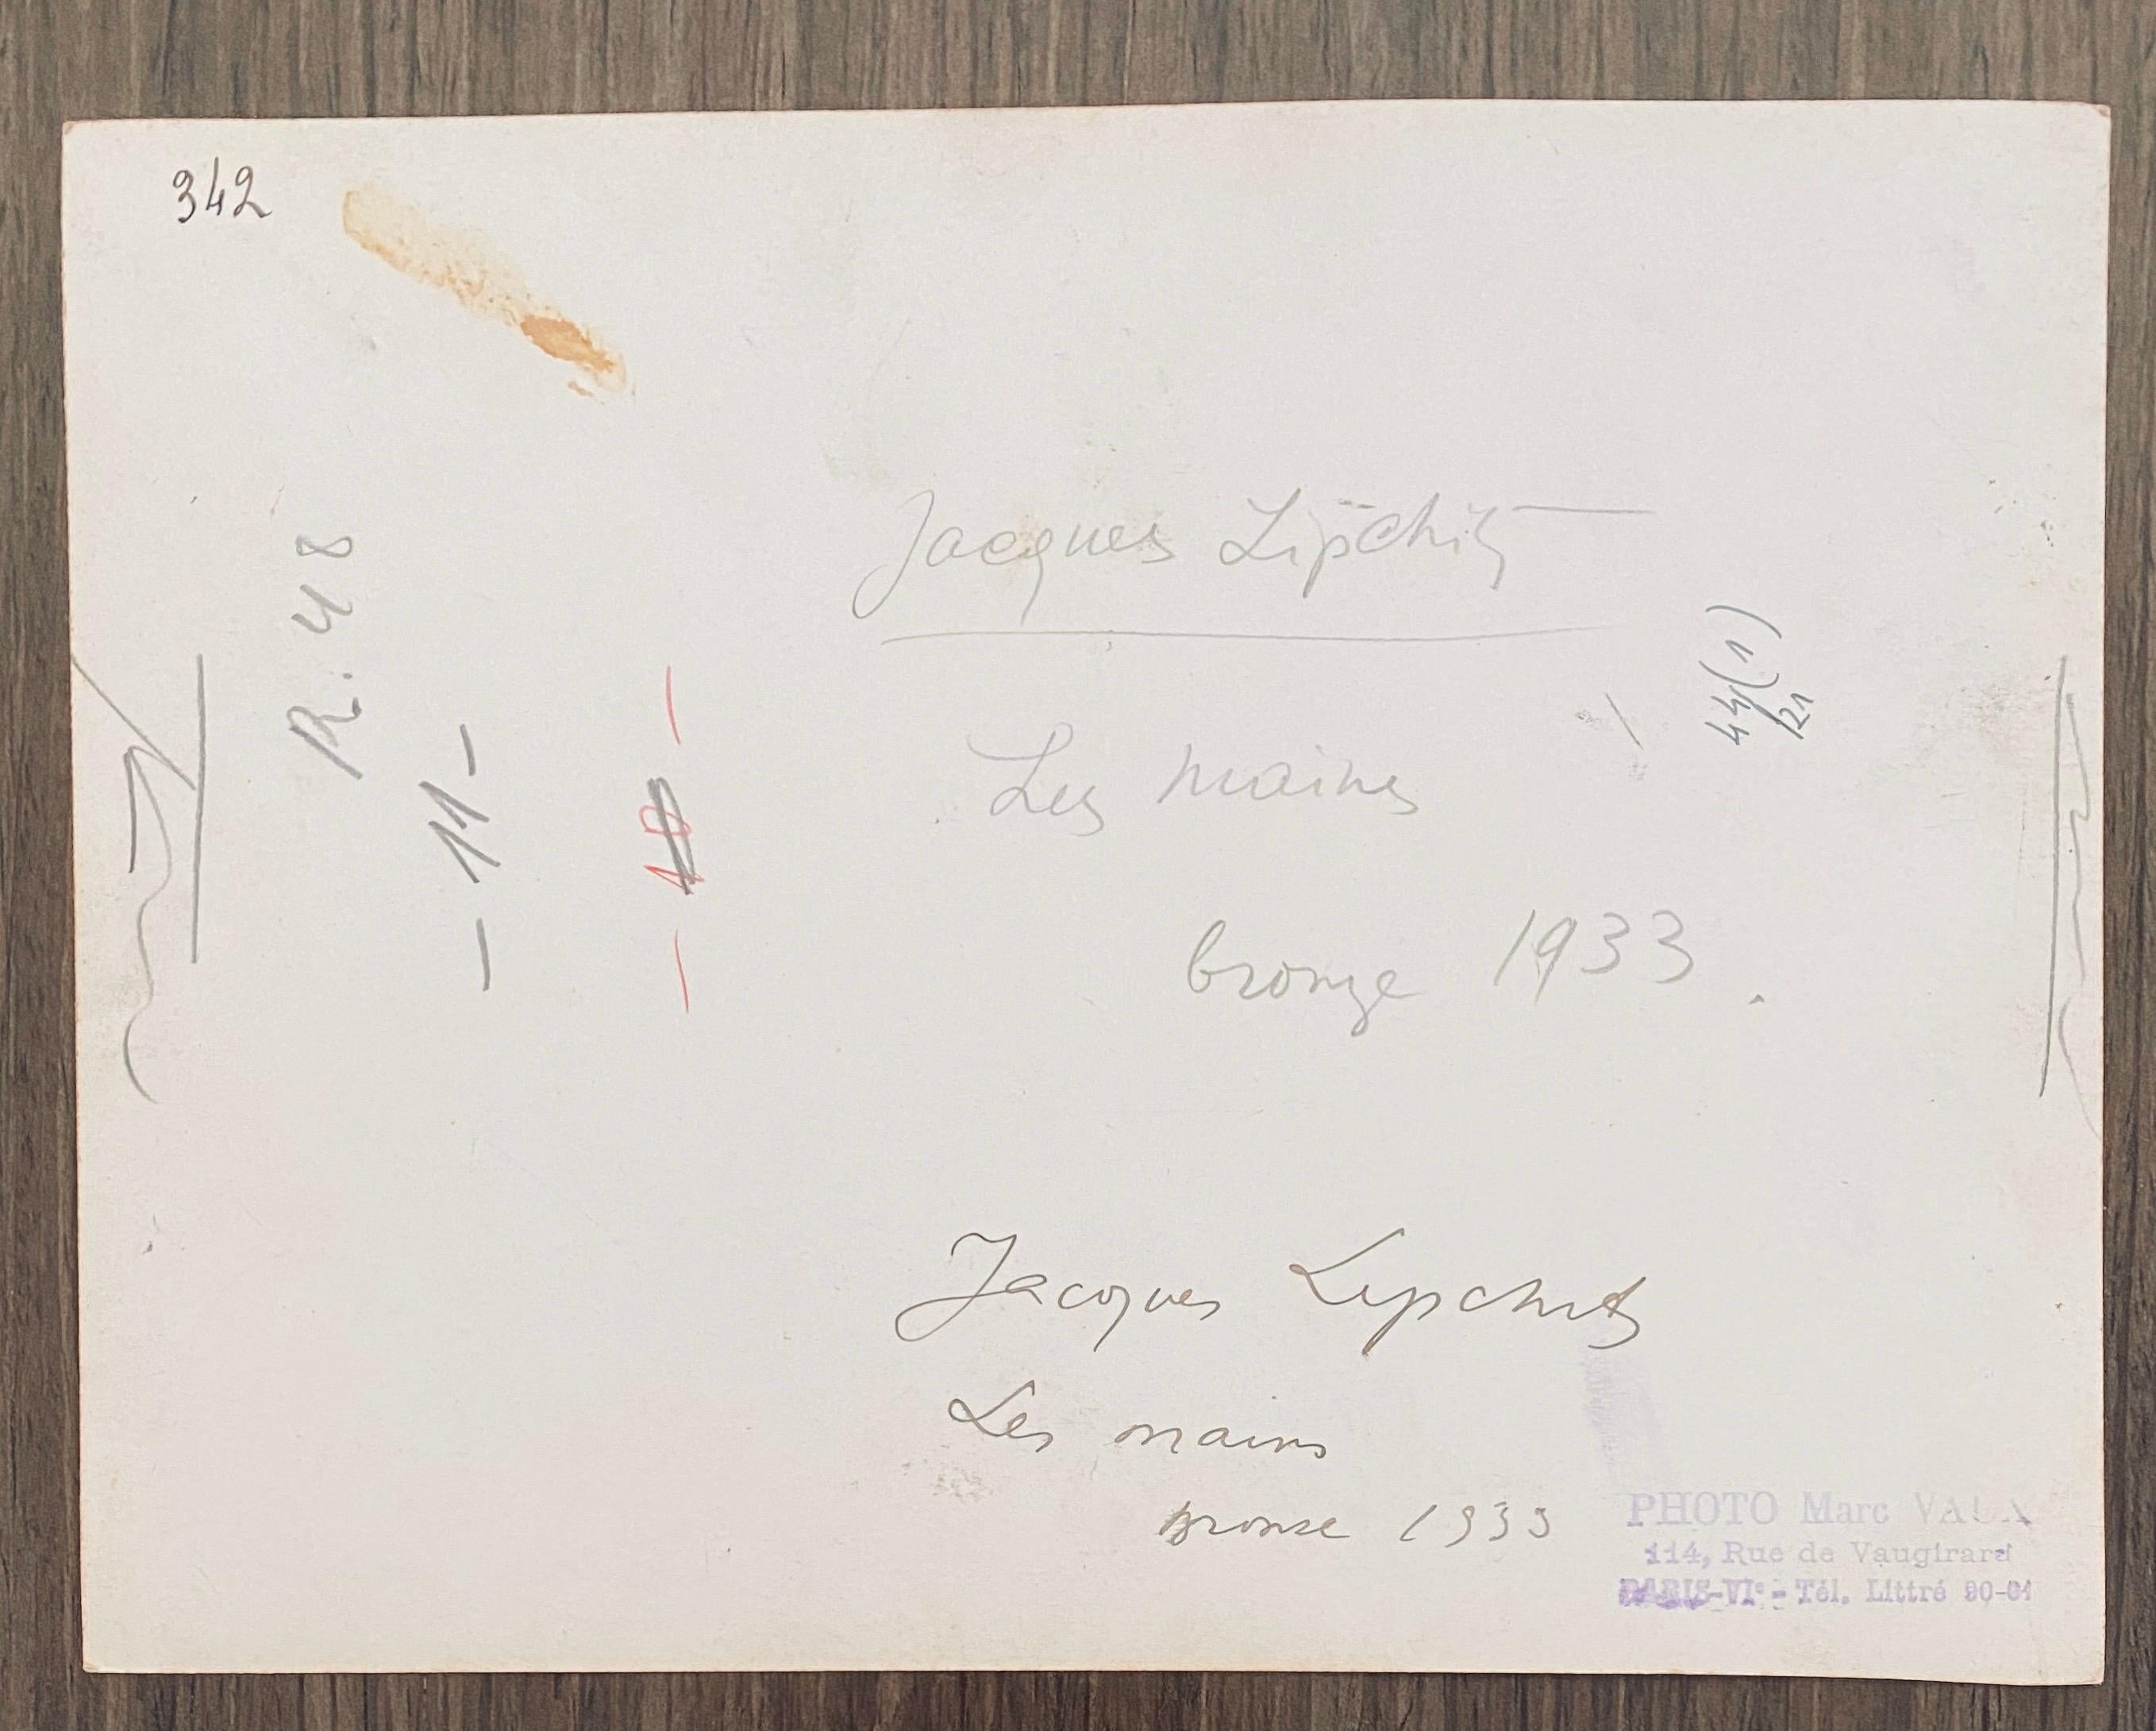 342
R. 48
- 11 -
- 10 -
Jacques Lipchitz
Les mains
bronze 1933.
44(1)
21
Jacques Lipchitz
Les mains
bronze 1933
PHOTO Marc VAUX
114, Rue de Vaugirard
PARIS-VIe - Tél. Littré 90-01